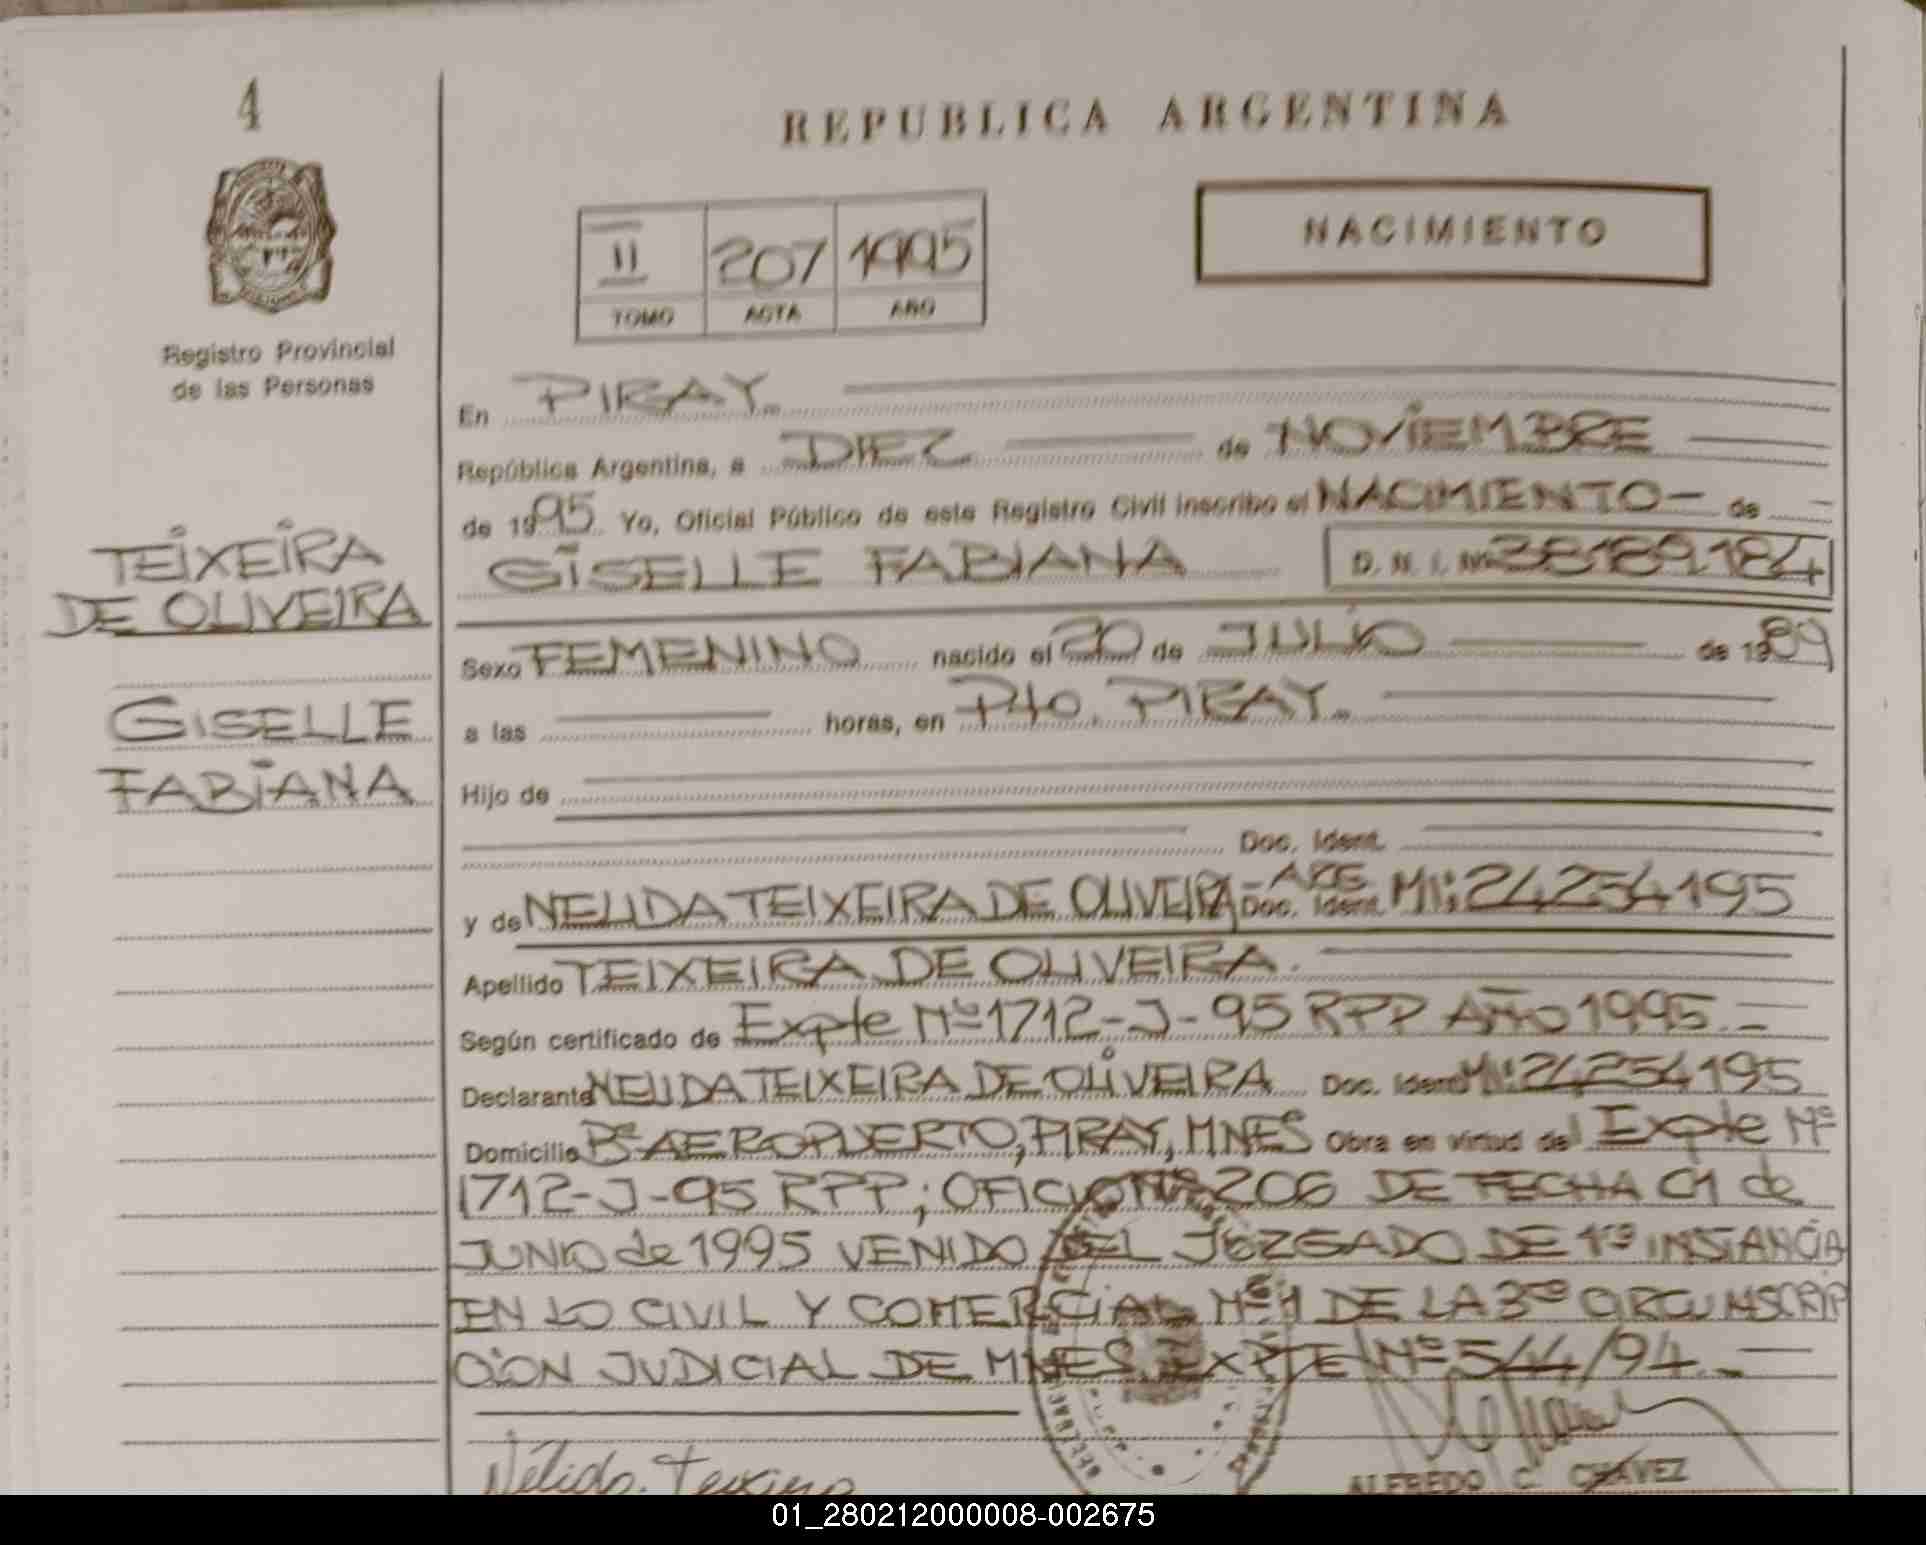 4
REPUBLICA ARGENTINA
NACIMIENTO
II 207 1995
TOMO ACTA AÑO
Registro Provincial
de las Personas
En PIRAY.
República Argentina, a DIEZ de NOVIEMBRE
de 1995 Yo, Oficial Público de este Registro Civil inscribo el NACIMIENTO - de
GISELLE FABIANA D. N. I. Nº 38189184
TEIXEIRA
DE OLIVEIRA
GISELLE
FABIANA
Sexo FEMENINO nacido el 20 de JULIO de 1989
a las horas, en Pto. PIRAY.
Hijo de
Doc. Ident.
y de NELIDA TEIXEIRA DE OLIVEIRA - ARG Doc. Ident. MI: 24254195
Apellido TEIXEIRA DE OLIVEIRA.
Según certificado de Expte Nº 1712-J-95 RPP AÑO 1995.-
Declarante NELIDA TEIXEIRA DE OLIVEIRA Doc. Ident MI: 24254195
Domicilio Bº AEROPUERTO, PIRAY, MNES Obra en virtud del Expte Nº
1712-J-95 RPP; OFICIO Nº 206 DE FECHA 01 de
JUNIO de 1995 VENIDO DEL JUZGADO DE 1ra INSTANCIA
EN LO CIVIL Y COMERCIAL Nº 1 DE LA 3ra CIRCUNSCRIP
CION JUDICIAL DE MNES EXPTE Nº 544/94.-
Nélida Teixeira
ALFREDO C. CHAVEZ
01_280212000008-002675